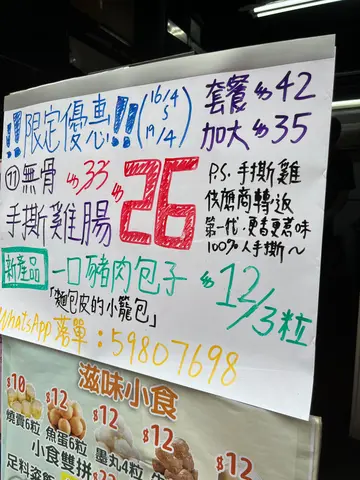 !!限定優惠!! (16/4
5
19/4)
套餐 $42
加大 $35
⑪ 無骨 $33 $26
手撕雞腸
P.S. 手撕雞
供應商轉返
第一代,更香更惹味
100%人手撕~
新產品 一口豬肉包子 $12/3粒
「麵包皮的小籠包」
WhatsApp落單:59807698
滋味小食
$10 $12 $12 $12
燒賣6粒 魚蛋6粒 墨丸4粒
小食雙拼